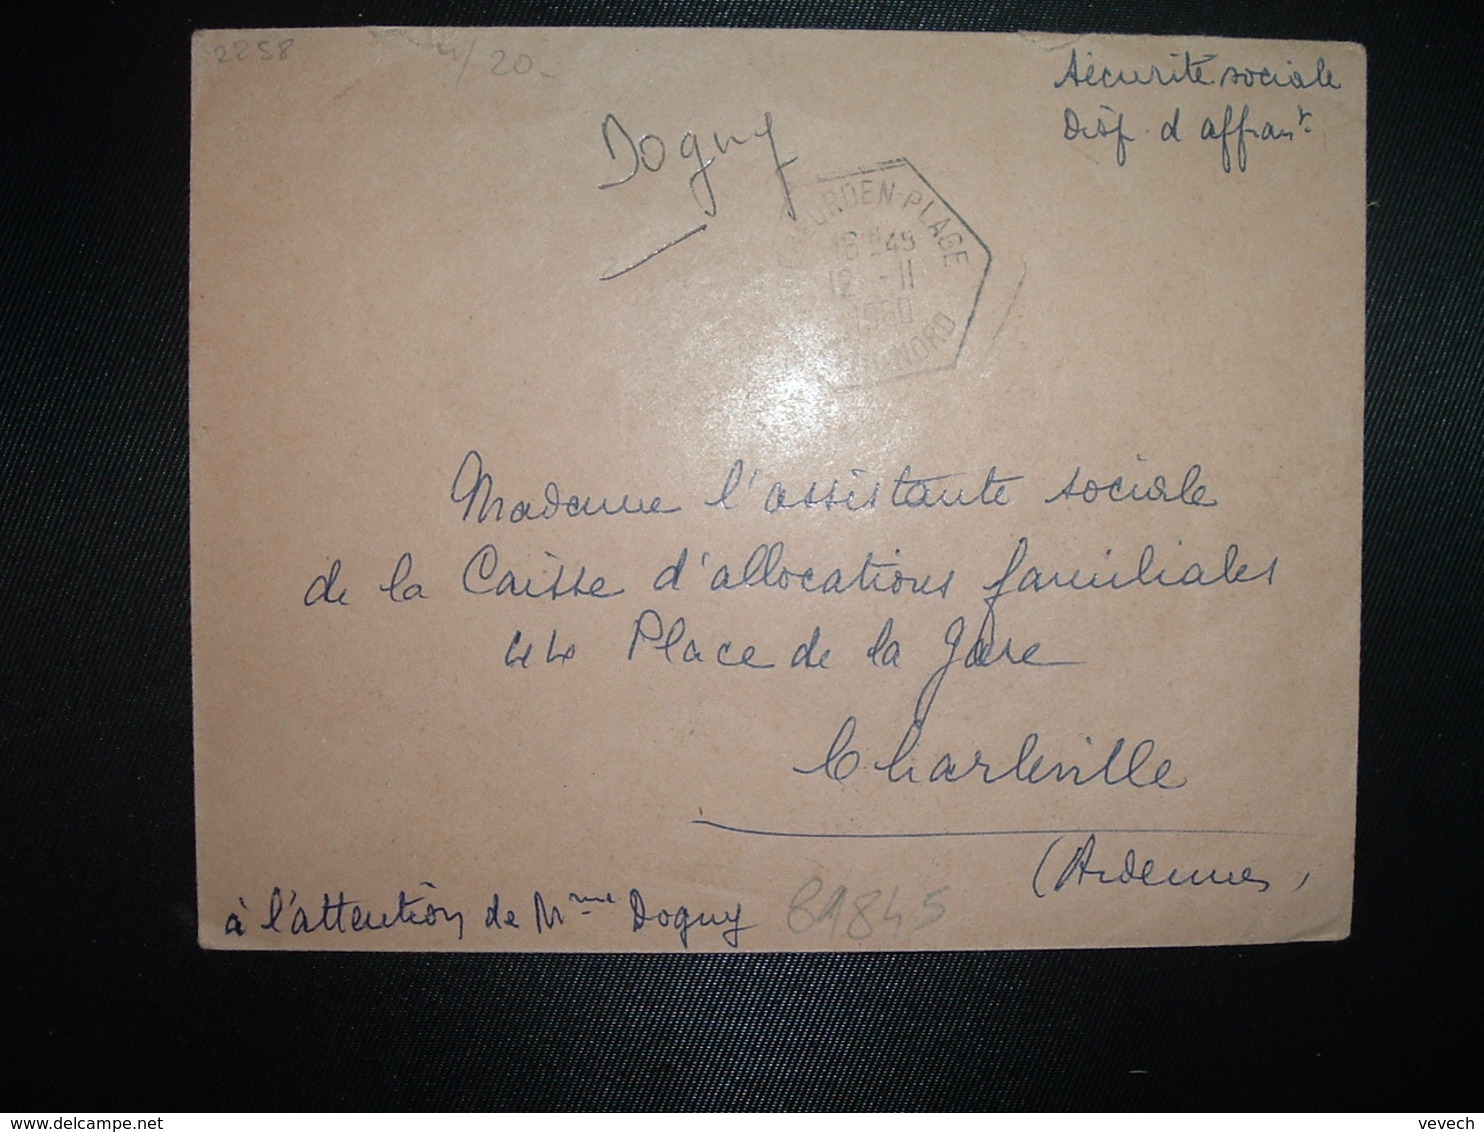 2258
20
Sécurité sociale
Disp. d'affran^t
Dogny
ORDEN-PLAGE
18H45
12 -11
1960
NORD
Madame l'assistante sociale
de la Caisse d'allocations familiales
44 Place de la Gare
Charleville
(Ardennes)
à l'attention de Mme Dogny
89845
vevech